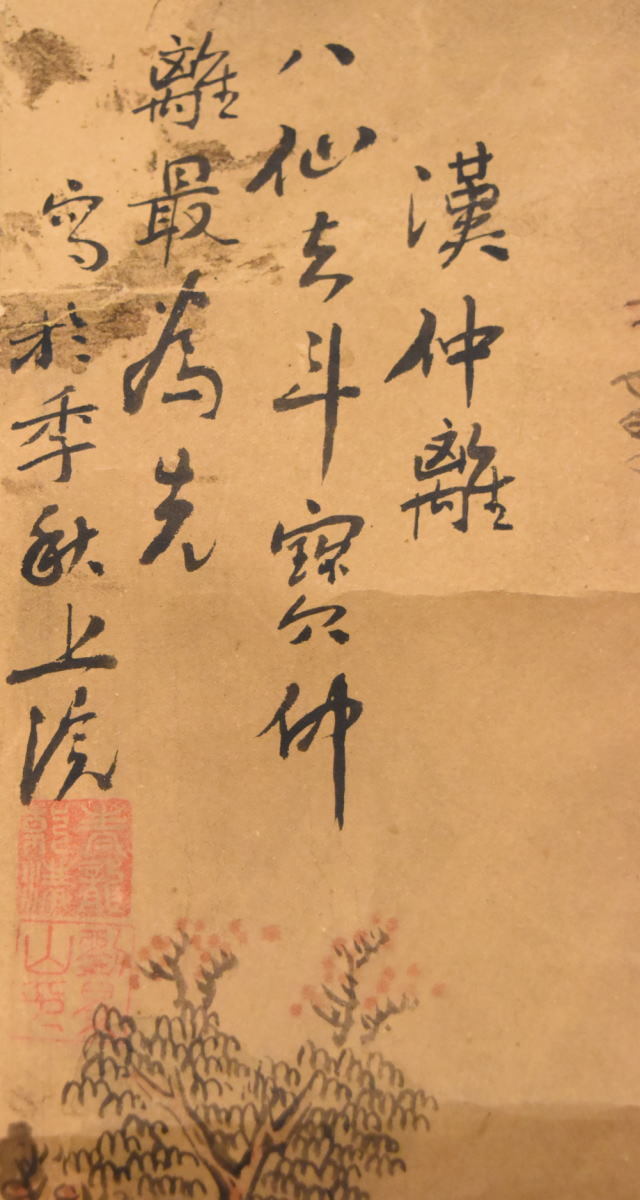 漢仲離
八仙去斗仲
離最為先
寫於季秋上浣